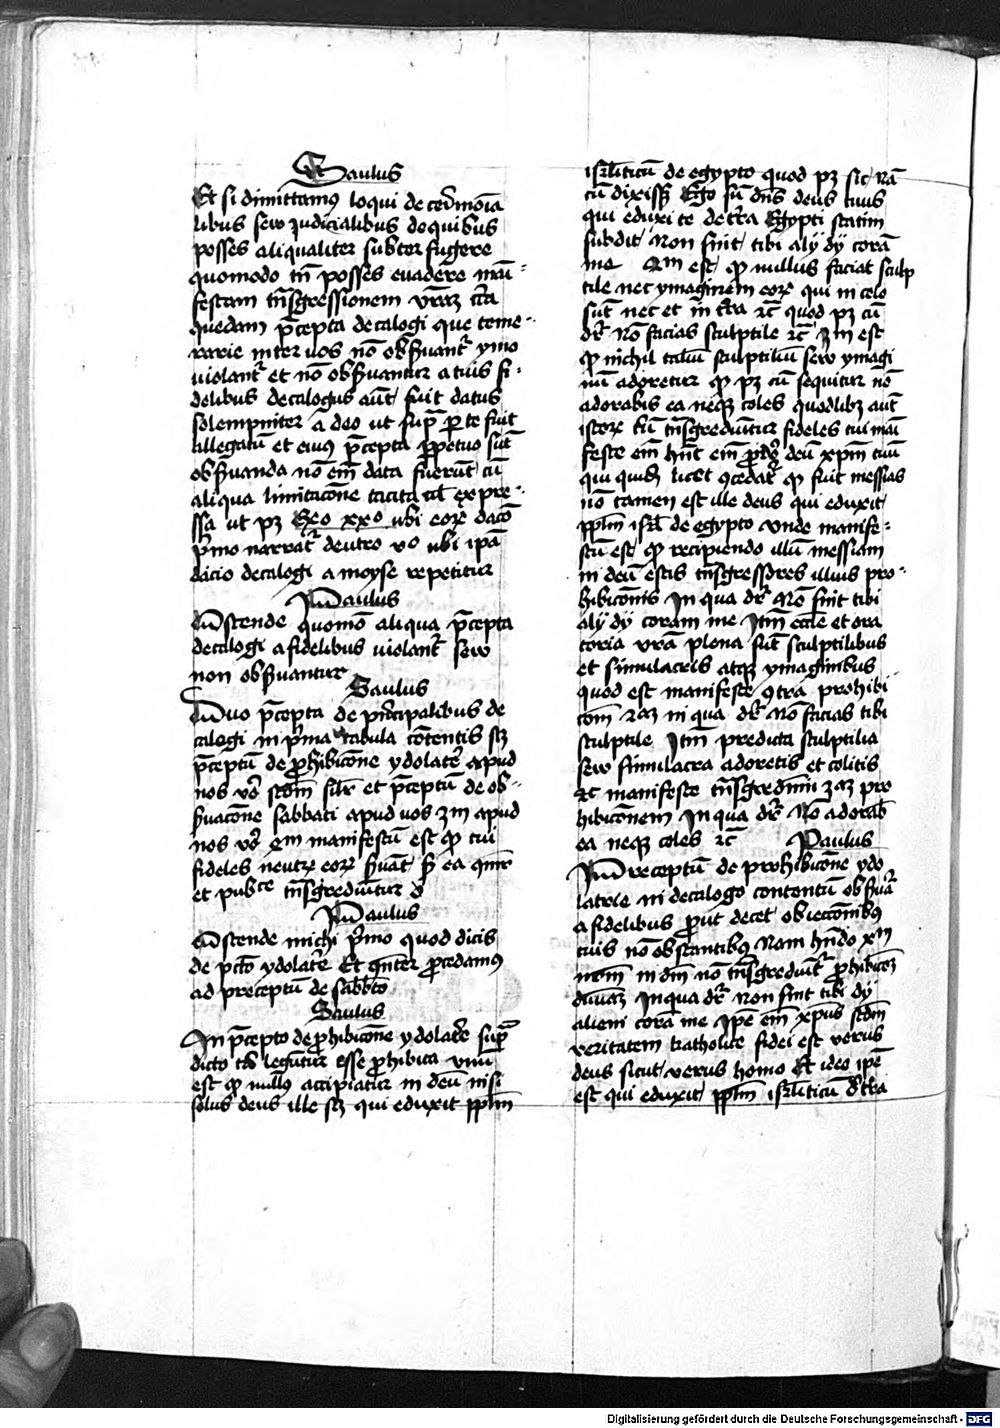 Saulus
Et si dimittamus loqui de cerimonia
libus seu judicialibus de quibus
posses aliqualiter subterfugere
quomodo tn̄ posses euadere mani
festam tn̄sgressionem vr̄am certa
quedam p̄cepta decalogi que teme
rarie inter uos nō obẜuant᷑ ymo
violant᷑ et nō obẜuantur a tuis fi
delibus decalogus aūt fuit datus
solempniter a deo ut sup̄ per te fuit
allegatū et eius p̄cepta ꝑpetuo sūt
obẜuanda nō em̄ data fuerūt cū
aliqua limitacōne tacita uel expre
ssa ut pꝫ Exo xxº ubi eoꝝ dacō
p̄mo narrat᷑ deutro vº ubi ipā
dacio decalogi a moyse repetitur
Paulus
Ostende quomō aliqua p̄cepta
decalogi a fidelibus violant᷑ seu
non obẜuantur
Saulus
Duo p̄cepta de principalibus de
calogi in p̄ma tabula cōtentis scꝫ
p̄ceptū de ꝓhibicōne ydolatrie apud
nos vº scd̄m silr̄ et p̄ceptū de ob
ẜuacōne sabbati apud uos 3m apud
nos vº 4m manifestū est ꝙ tui
fideles neutꝝ eoꝝ ẜuāt sꝫ ea
et publice tn̄sgrediuntur
Paulus
Ostende michi p̄mo quod dicis
de p̄cō ydolatrie Et ꝓcedamus
ad preceptū de sabb̄to
Saulus
In p̄cepto de ꝓhibicōne ydolatrie supra
dicto legūtur esse ꝓhibita vnū
est ꝙ nullus accipiatur in deū nisi
solus deus ille scꝫ qui eduxit pp̄lm
isrl̄iticū de egypto quod pꝫ sic nā
cū dixisset Ego sū dn̄s deus tuus
qui eduxi te de terra Egypti statim
subdit Non sint tibi alij dij corā
me 2m est ꝙ nullus faciat sculp
tile nec ymaginem eoꝝ qui in celo
sūt nec et in terra ⁊c quod pꝫ cū
dr̄ Nō facias sculptile ⁊c 3m est
ꝙ nichil taliū sculptiliū seu ymagi
nū adoretur ꝙ pꝫ cū sequitur nō
adorabis ea neqꝫ coles quodlibꝫ aūt
istoꝝ tn̄sgrediūtur fideles tui mani
feste em̄ hn̄t em̄ deū xp̄m tuū
qui quidem licet ꝯcedat᷑ ꝙ fuit messias
nō tamen est ille deus qui eduxit
pp̄lm isrl̄ de egypto vnde manife
stū est ꝙ recipiendo illū messiam
in deū estis tn̄sgressores illius pro
hibicōnis In qua dr̄ Nō sint tibi
alij dij coram me Itm̄ eccl̄e et ora
toria vr̄a plena sūt sculptilibus
et simulacris atqꝫ ymaginibus
quod est manifeste ꝯtra prohibi
cōm 2am in qua dr̄ Nō facias tibi
sculptile Itm̄ predicta sculptilia
seu simulacra adoretis et colitis
⁊c manifeste tn̄sgredimini 3am pro
hibicōnem In qua dr̄ Nō adorab̄
ea neqꝫ coles ⁊c Paulus
Preceptū de prohibicōne ydo
latrie in decalogo contentū obẜuat᷑
a fidelibus prout decet obieccōnibus
tuis nō obstantibus Nam habendo xm̄
in dm̄ nō tn̄sgrediūt᷑ ꝓhibicōem
diuinam In qua dr̄ Non sint tibi dij
alieni corā me Ipse em̄ xp̄us scd̄m
veritatem katholice fidei est verus
deus sicut verus homo Et ideo ipse
est qui eduxit pp̄lm isrl̄iticū de terra
Digitalisierung gefördert durch die Deutsche Forschungsgemeinschaft - DFG